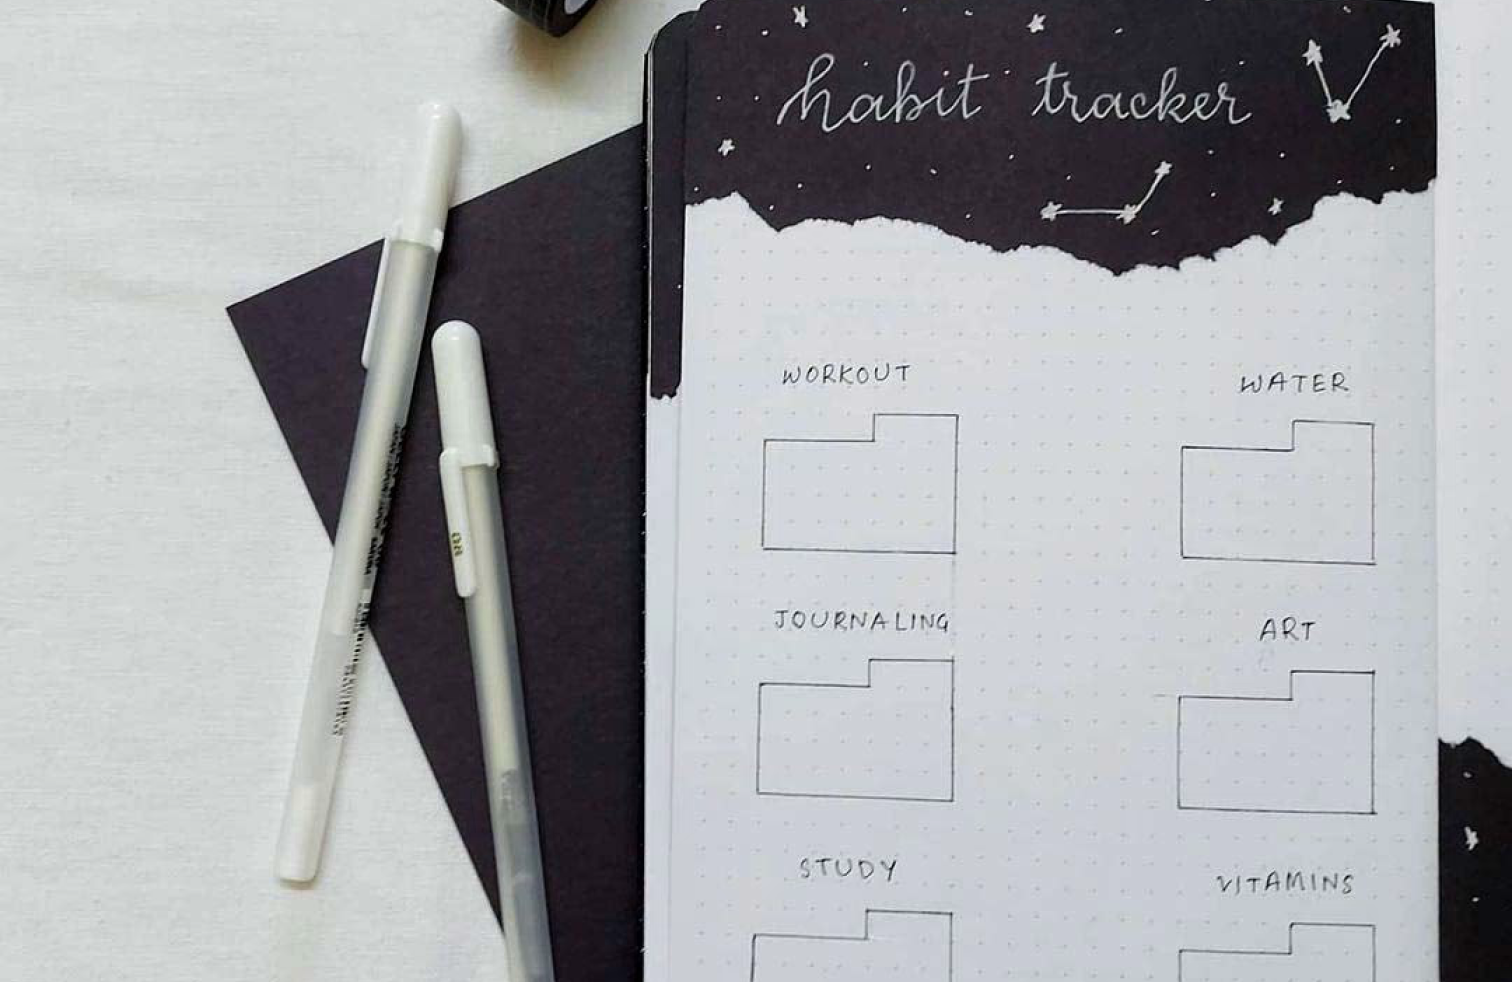 habit tracker
WORKOUT
WATER
JOURNALING
ART
STUDY
VITAMINS